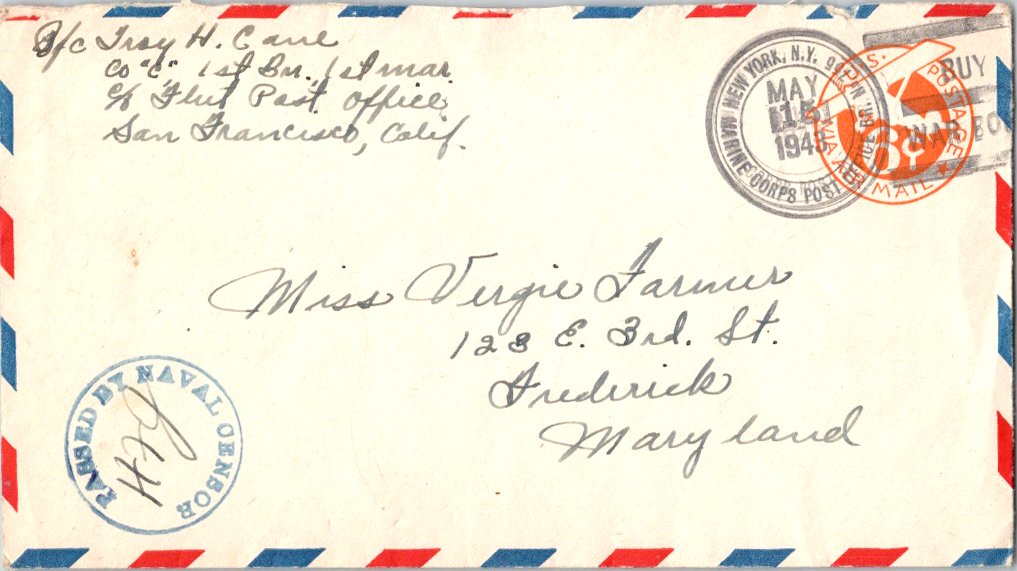 Pfc Troy H. Cane
Co "C" 1st Bn. 1st Mar.
c/o Fleet Post Office
San Francisco, Calif.
NEW YORK, N.Y.
MARINE CORPS POST OFFICE
MAY
15
1943
U.S. POSTAGE
VIA AIR MAIL
6¢
BUY
WAR BON
Miss Vergie Farmer
123 E. 3rd. St.
Frederick
Maryland
PASSED BY NAVAL CENSOR